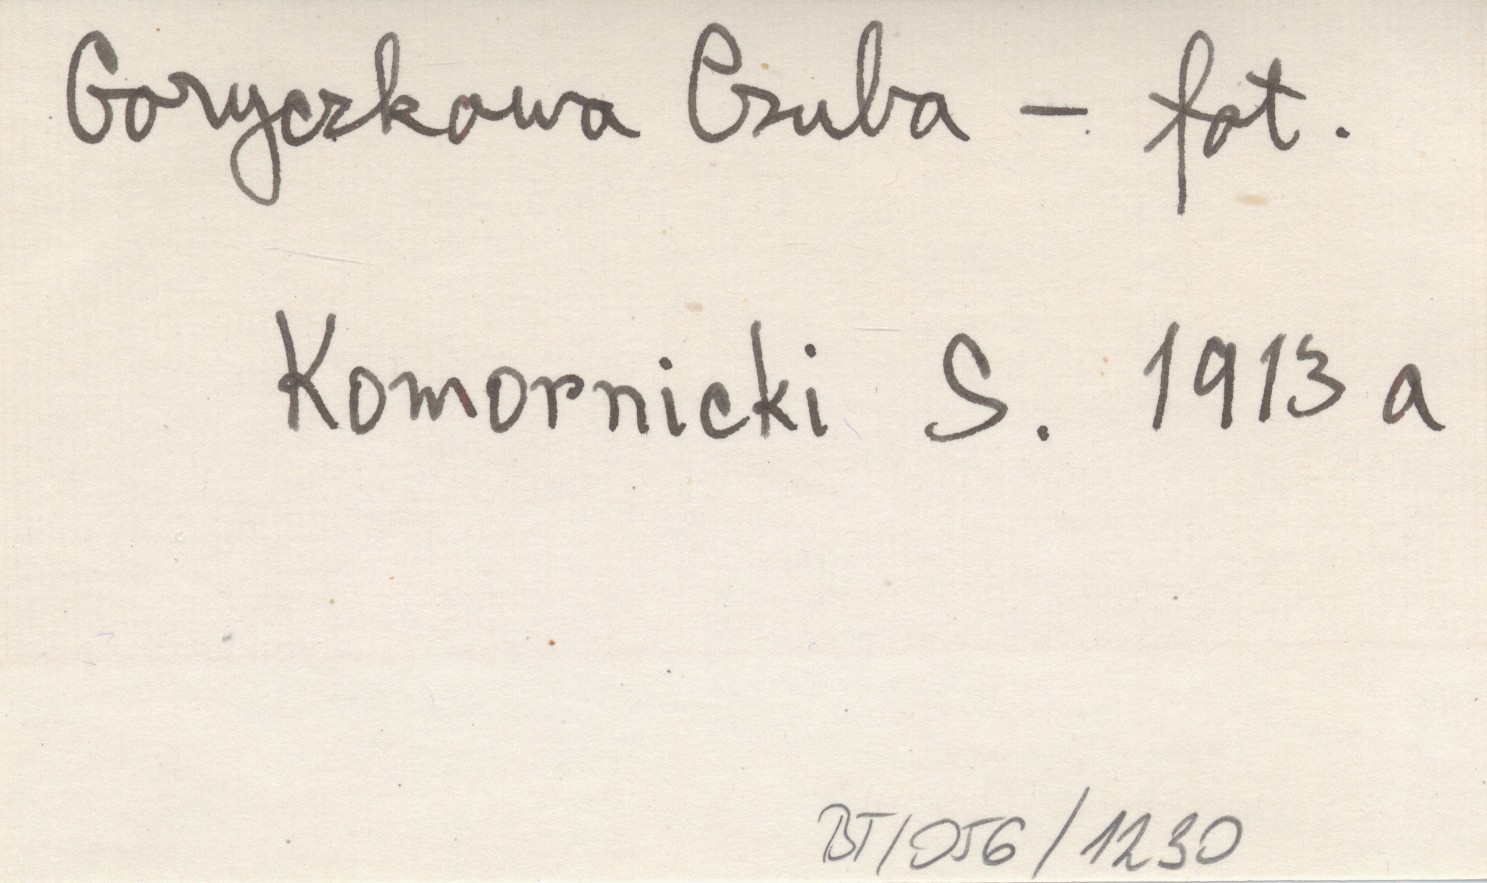 Goryczkowa Czuba – fot.
Komornicki S. 1913 a
BT/056/1230